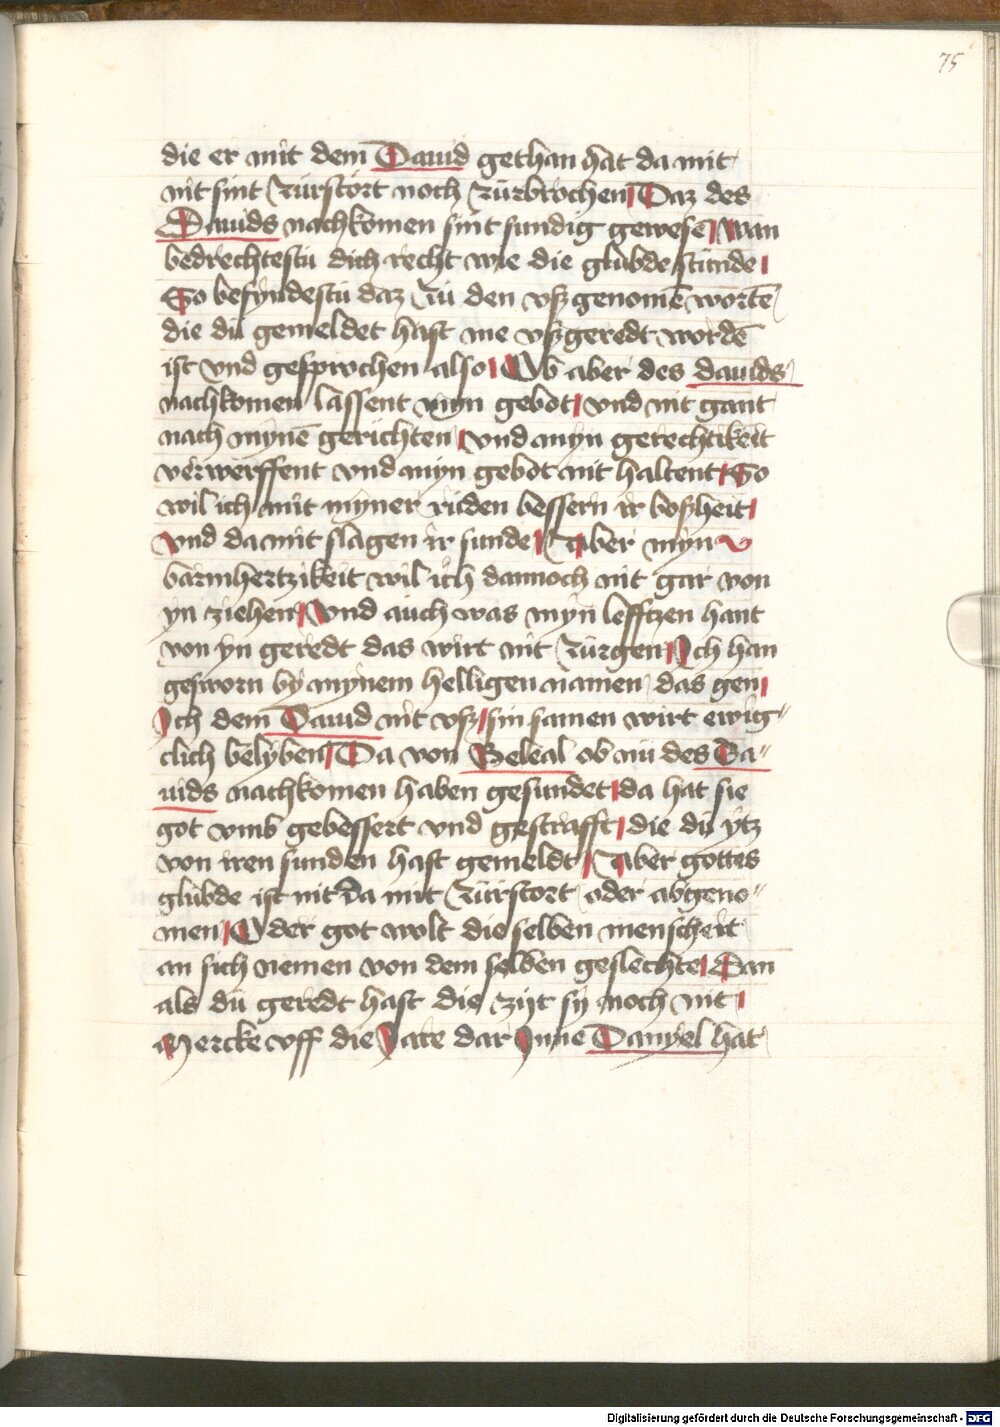 75
die er mit dem Dauid gethan hat da mit
nit sint zurstort noch zurbrochen Daz des
Dauids nachkomen sint sundig gewesē wan
bedrechtestu dich recht wie die glubde stunde
So befyndestu daz zu den vßgenomē wortē
die du gemeldet hast me vßgeredt wordē
ist vnd gesprochen also Ob aber des dauids
nachkomen lassent myn gebot vnd nit gant
nach mynē gerichten vnd myn gerechtikeit
verwerffent vnd myn gebot nit haltent So
wil ich mit myner ruden bessern ir boßheit
vnd da mit slagen ir sunde Aber myn
barmhertzikeit wil ich dannoch nit gar von
yn ziehen Vnd auch was myn lefftzen hant
von yn geredt das wirt nit zurgen Ich han
gesworn by mynem helligen namen das gen
Ich dem Dauid nit vß sin samen wirt ewig"
clich belyben Da von Beleal ob nu des Da"
uids nachkomen haben gesundet da hat sie
got vmb gebessert vnd gestrafft die du ytz
von iren sunden hast gemeldt Aber gottes
glubde ist nit da mit zurstort oder abgeno"
men Oder got wolt die selben menscheit
an sich nemen von dem selben geslechte Dan
als du geredt hast die zijt sy noch nit
Mercke vff die Jare dar Inne Danyel hat
Digitalisierung gefördert durch die Deutsche Forschungsgemeinschaft - DFG